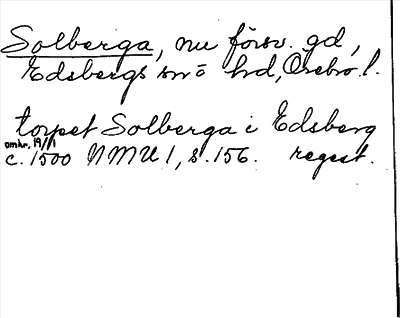 Solberga, nu försv. gd,
Edsbergs sn o hd, Örebro l.
torpet Solberga i Edsberg
omkr. 19/1
c. 1500 NMU 1, s. 156. regest.